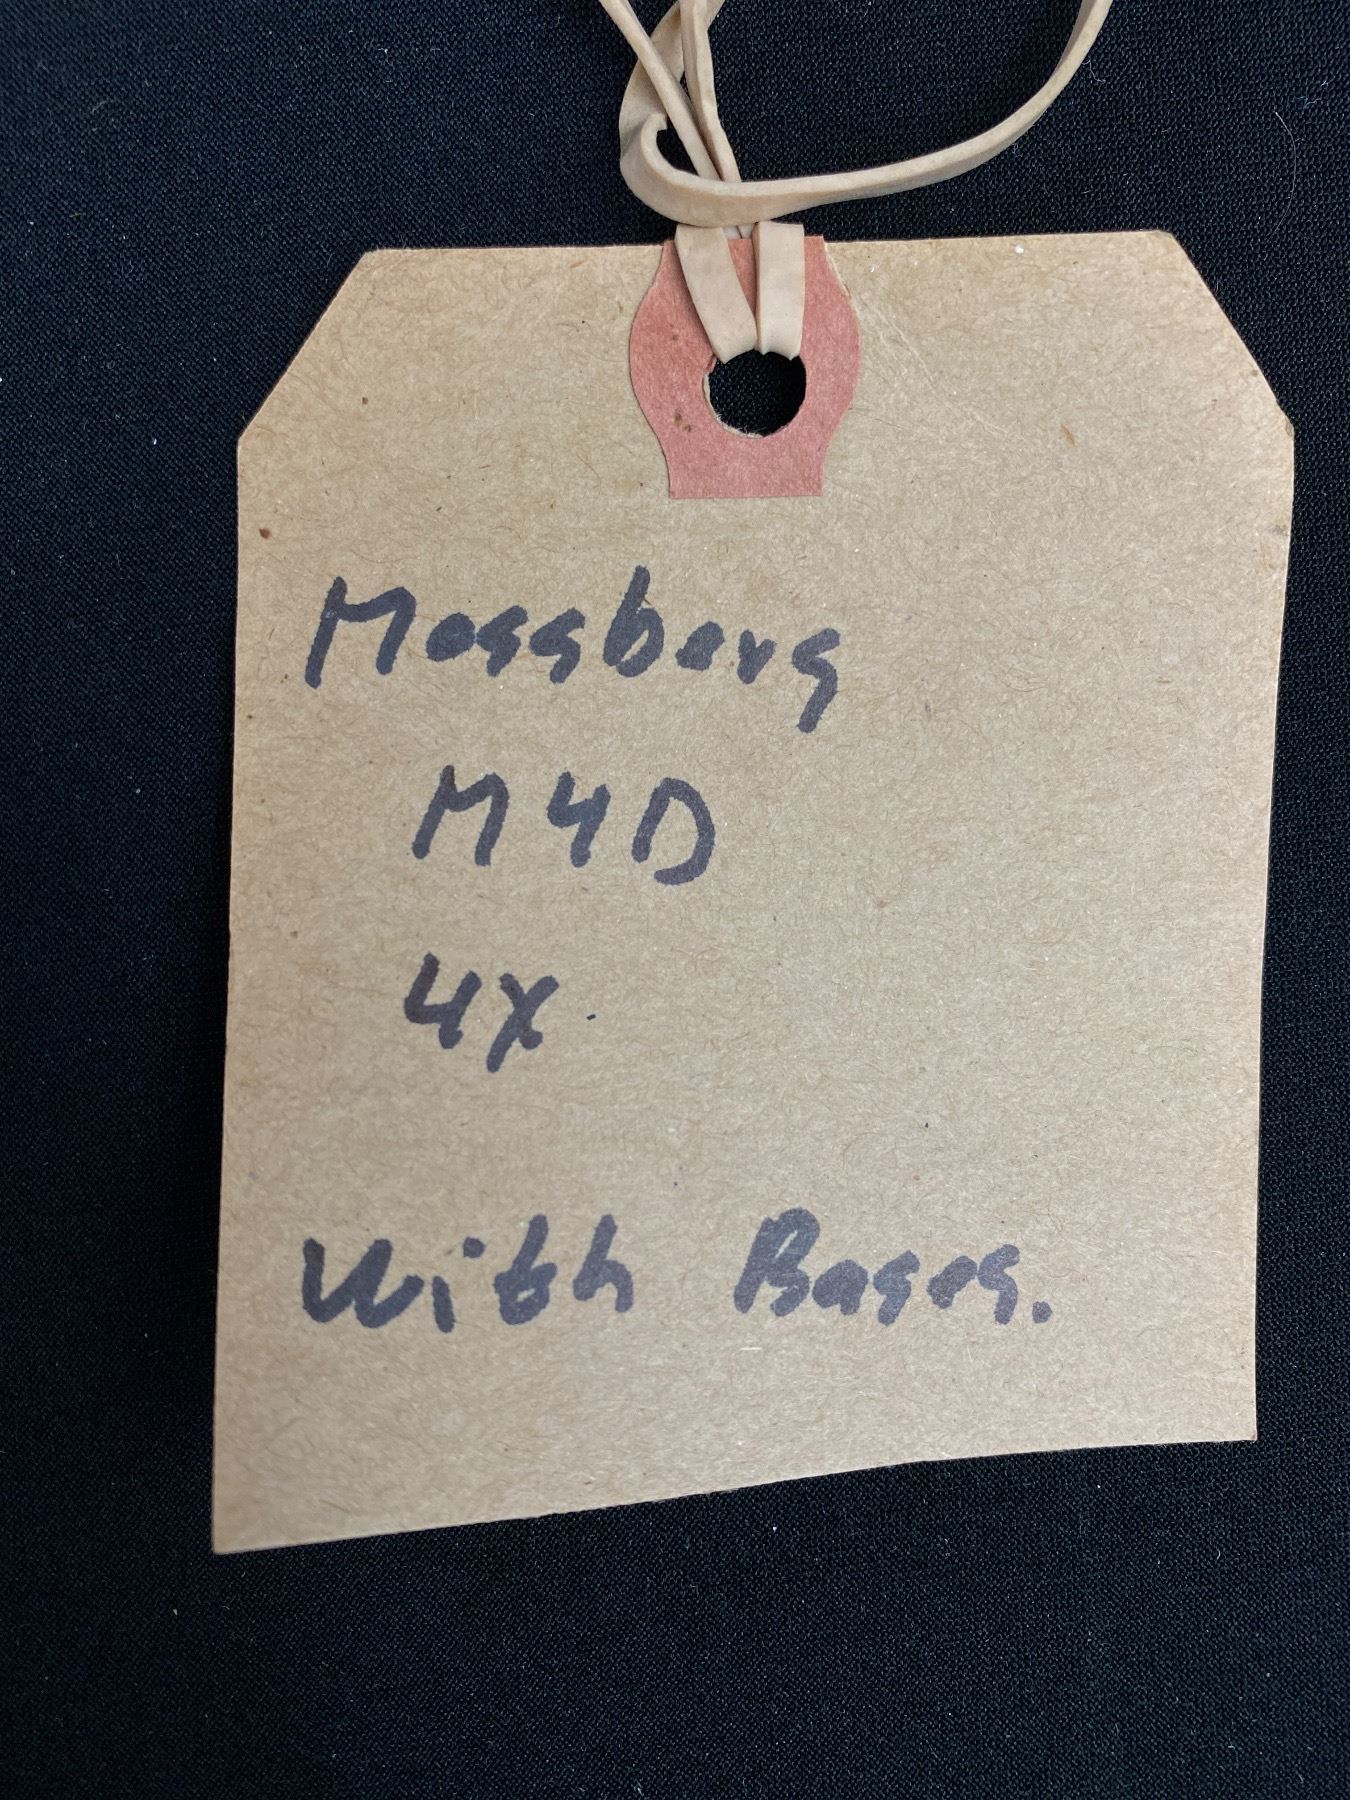 Mossberg
M4D
4X
With Bases.